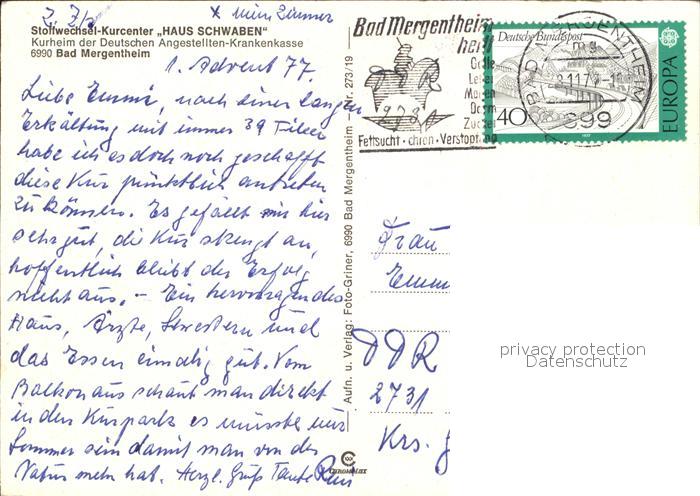 x mein Zimmer
Stoffwechsel-Kurcenter „HAUS SCHWABEN"
Kurheim der Deutschen Angestellten-Krankenkasse
6990 Bad Mergentheim
1. Advent 77.
Liebe Emmi, nach einer langen
Erkältung mit immer 39 Fieber
habe ich es doch noch geschafft
diese Kur pünktlich antreten
zu können. Es gefällt mir hier
sehr gut, die Kur strengt an,
hoffentlich bleibt der Erfolg
nicht aus. – Ein hervorragendes
Haus, Ärzte, Schwestern und
das Essen einmalig gut. Vom
Balkon aus schaut man direkt
in den Kurpark es müsste nur
Sommer sein damit man von der
Natur mehr hat. Herzl. Gruß Tante
Aufn. u. Verlag: Foto-Griner, 6990 Bad Mergentheim – Nr. 273/19
CHROMOLUX
Bad Mergentheim
heilt
Galle
Leber
Magen
Darm
Zucker
Fettsucht · chron. Verstopfung
BAD MERGENTHEIM
699
Deutsche Bundespost
40
EUROPA
1977
Frau
Emm
DDR
2731
Krs.
privacy protection
Datenschutz